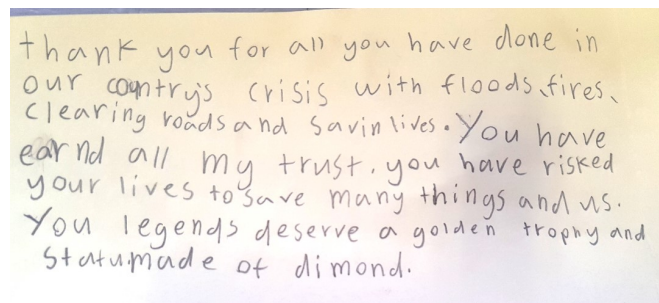 thank you for all you have done in
our country's crisis with floods, fires,
clearing roads and savin lives. You have
earnd all my trust. you have risked
your lives to save many things and us.
You legends deserve a golden trophy and
statu made of dimond.